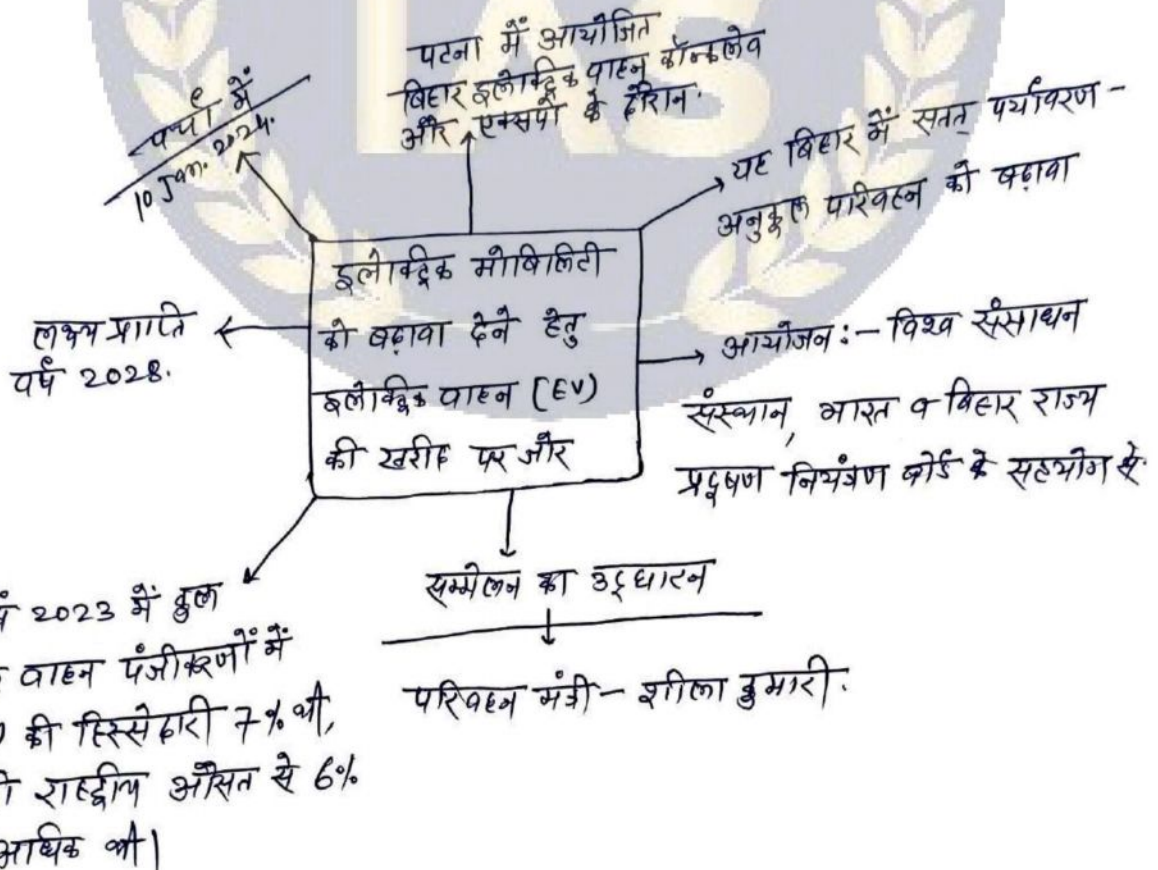 IAS
चर्चा में
10 Jan. 2024.
पटना में आयोजित
बिहार इलेक्ट्रिक वाहन कॉन्क्लेव
और एक्सपो के दौरान.
यह बिहार में सतत् पर्यावरण -
अनुकूल परिवहन को बढ़ावा
इलेक्ट्रिक मोबिलिटी
को बढ़ावा देने हेतु
इलेक्ट्रिक वाहन (EV)
की खरीद पर जोर
लक्ष्य प्राप्ति
वर्ष 2028.
आयोजन :- विश्व संसाधन
संस्थान, भारत व बिहार राज्य
प्रदूषण नियंत्रण बोर्ड के सहयोग से.
सम्मेलन का उद्घाटन
परिवहन मंत्री - शीला कुमारी.
2023 में कुल
वाहन पंजीकरणों में
की हिस्सेदारी 7% थी,
राष्ट्रीय औसत से 6%
अधिक थी।